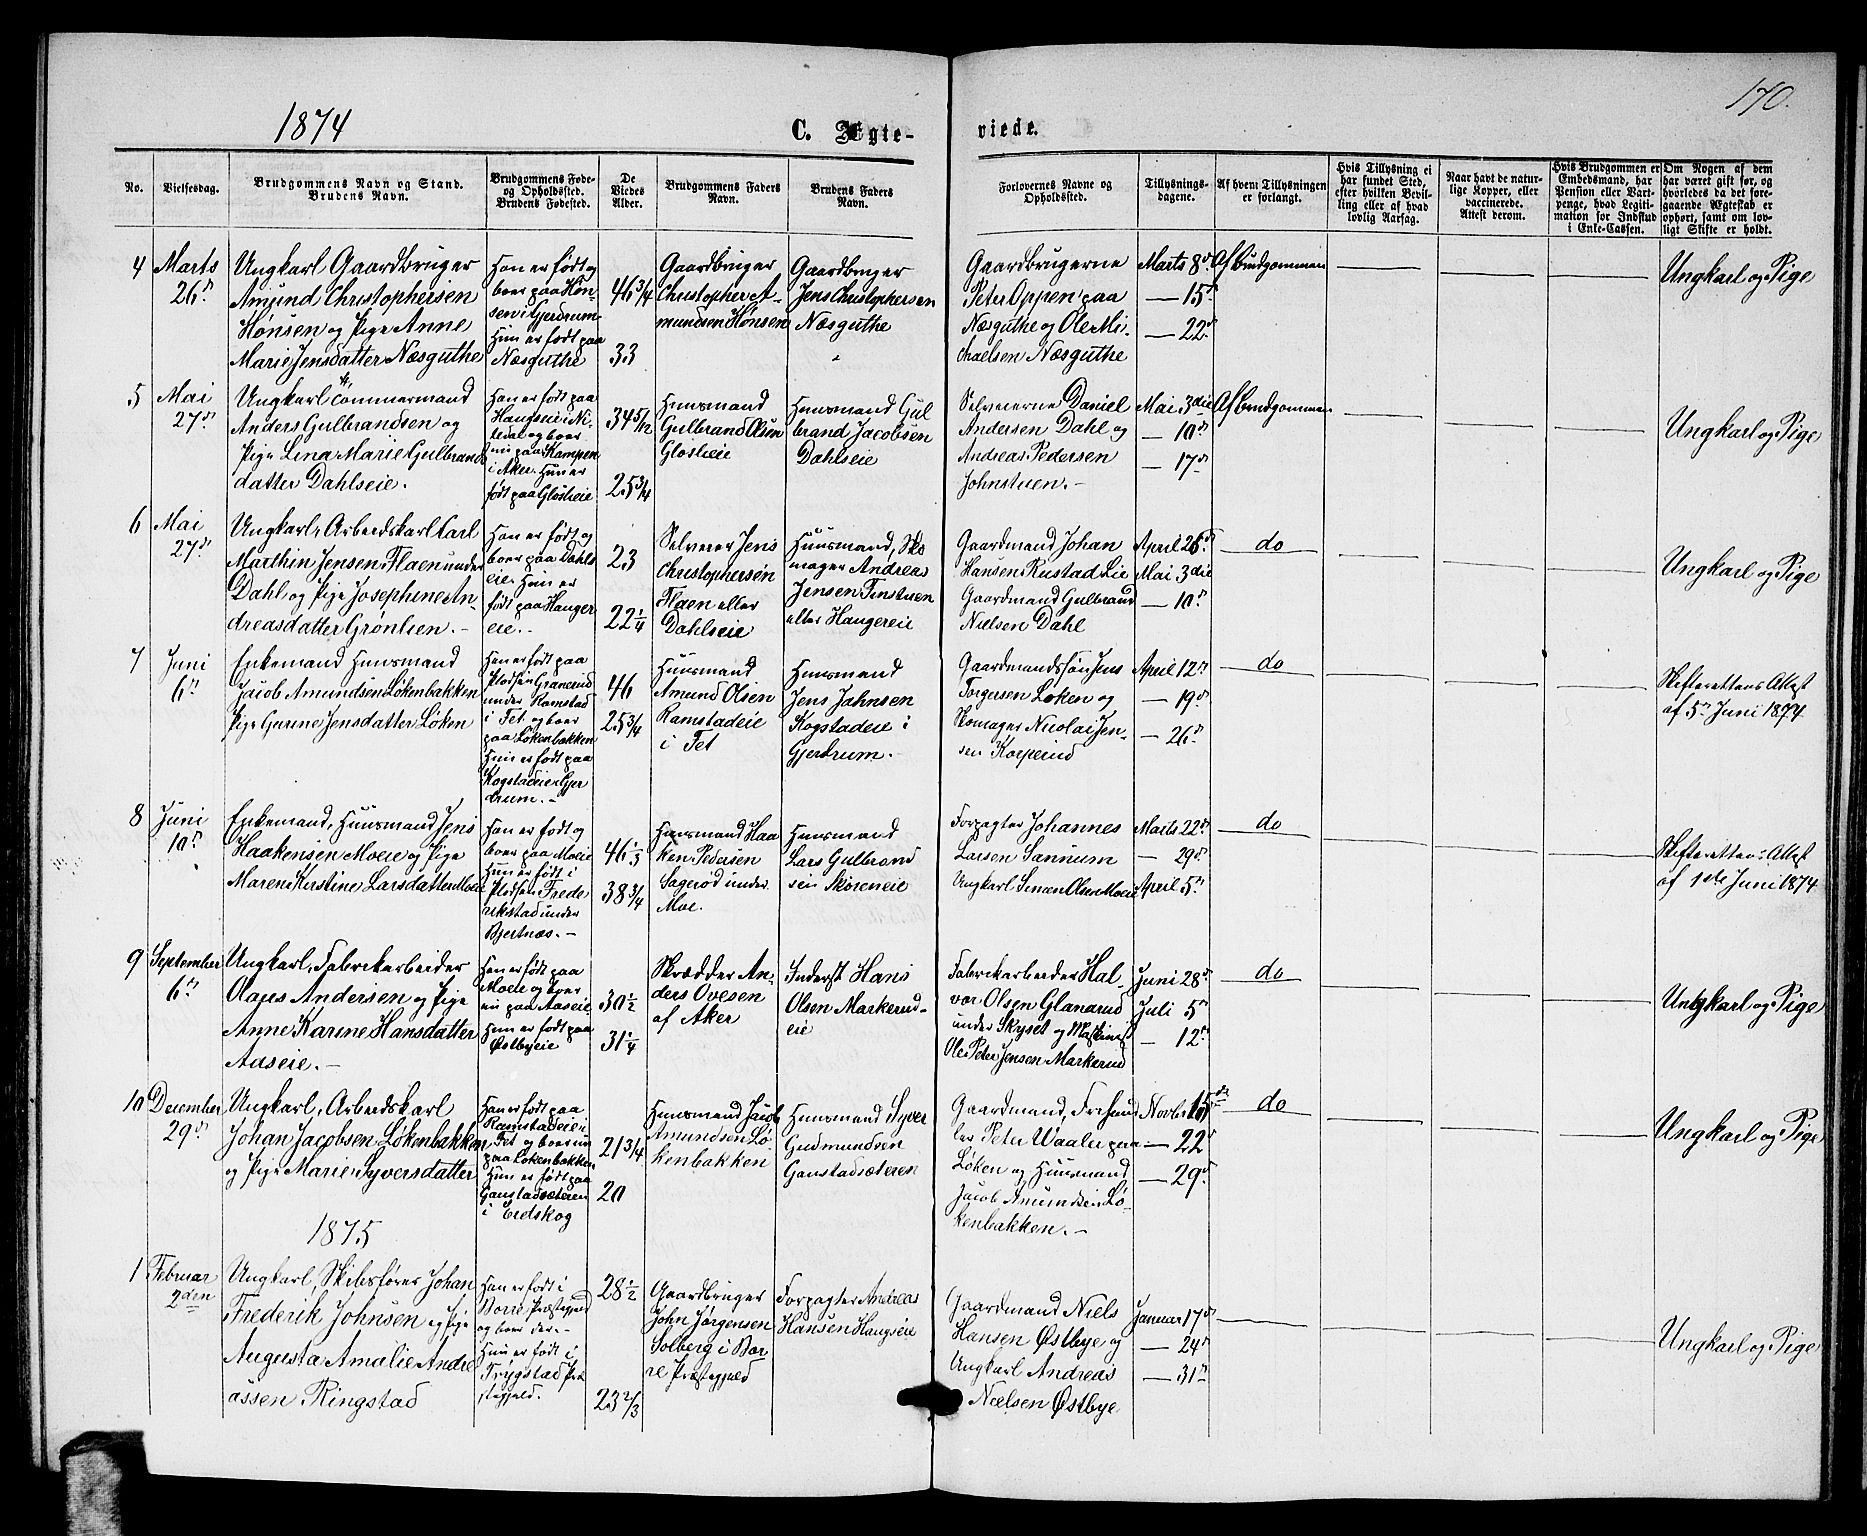 1874
C. Ægte-
viede.
170.
No.
Vielsesdag.
Brudgommens Navn og Stand.
Brudens Navn.
Brudgommens Føde-
og Opholdssted.
Brudens Fødested.
De
Viedes
Alder.
Brudgommens Faders
Navn.
Brudens Faders
Navn.
Forlovernes Navne og
Opholdssted.
Tillysnings-
dagene.
Af hvem Tillysningen
er forlangt.
Hvis Tillysning ei
har fundet Sted,
efter hvilken Bevil-
ling eller af hvad
lovlig Aarsag.
Naar havt de natur-
lige Kopper, eller
vaccinerede.
Attest derom.
Hvis Brudgommen er
Embedsmand, har
Pension eller Vart-
penge, hvad Legiti-
mation for Indskud
i Enke-Cassen.
Om Nogen af dem
har været gift før, og
hvorledes da det fore-
gaaende Ægteskab er
ophørt, samt om lov-
ligt Skifte er holdt.
4
Marts
26de
Ungkarl Gaardbruger
Amund Christophersen
Hønsen og Pige Anne
Marie Jensdatter Næsguthe
Han er født og
boer paa Høn-
sen i Gjerdrum
Hun er født paa
Næsguthe
46 3/4
33
Gaardbruger
Christopher A-
mundsen Hønsen
Gaardbruger
Jens Christophersen
Næsguthe
Gaardbrugerne
Peter Oppen paa
Næsguthe og Ole Mi-
chaelsen Næsguthe
Marts 8de
— 15de
— 22de
Af Brudgommen
Ungkarl og Pige
5
Mai
27de
Ungkarl Tømmermand
Anders Gulbrandsen og
Pige Lina Marie Gulbrands
datter Dahlseie.
Han er født paa
Haugseie i Ni-
tedal og boer
nu paa Kampen
i Aker. Hun er
født paa Glosheie
34 5/12
25 3/4
Huusmand
Gulbrand Olsen
Glosheie
Huusmand Gul
brand Jacobsen
Dahlseie
Selveierne Daniel
Andersen Dahl og
Andreas Pedersen
Johnstuen.-
Mai 3die
— 10de
— 17de
Af Brudgommen
Ungkarl og Pige
6
Mai
27de
Ungkarl, Arbeidskarl Carl
Marthin Jensen Flaen under
Dahl og Pige Josephine An-
dreasdatter Grønlien.-
Han er født og
boer paa Dahls
eie. Hun er
født paa Hauger
eie.-
23
22 1/4
Selveier Jens
Christophersen
Flaen eller
Dahlseie
Huusmand, Sko
mager Andreas
Jensen Finstuen
eller Haugereie
Gaardmand Johan
Hansen Rustad Lie
Gaardmand Gulbrand
Nielsen Dahl
April 26de
Mai 3die
— 10de
do
Ungkarl og Pige
7
Juni
6te
Enkemand Huusmand
Jacob Amundsen Løkenbakken
Pige Gurine Jensdatter Løken
Han er født paa
Pladsen Granerud
under Ramstad
i Fet og boer
paa Løkenbakken
Hun er født paa
Kogstadeie i Gjer
drum.-
46
25 3/4
Huusmand
Amund Olsen
Ramstadeie
i Fet
Huusmand
Jens Jahnsen
Kogstadeie i
Gjerdrum.-
Gaardmandssøn Jens
Torgersen Løken og
Skomager Nicolai Jen-
sen Korperud
April 12te
— 19de
— 26de
do
Skifterettens Attest
af 5te Juni 1874.
8
Juni
10de
Enkemand, Huusmand Jens
Haakensen Moeie og Pige
Maren Kirstine Larsdatter Moe
Han er født og
boer paa Moeie
Hun er født i
Pladsen Frede
rikstad under
Bjertnæs.-
46 1/3
38 3/4
Huusmand Haa
ken Pedersen
Sagerød under
Moe.
Huusmand
Lars Gulbrand
sen Skøreneie
Forpagter Johannes
Larsen Sannum
Ungkarl Simen Olsen Moeie
Marts 22de
— 29de
April 5te
do
Skifterettens Attest
af 1ste Juni 1874.
9
September
6te
Ungkarl, Fabrikarbeider
Olaus Andersen og Pige
Anne Karine Hansdatter
Aaseie.-
Han er født paa
Moeie og boer
nu paa Aaseie
Hun er født paa
Østbyeie
30 1/2
31 1/4
Skrædder An-
ders Ovesen
af Aker
Inderst Hans
Olsen Markerud-
eie
Fabrikarbeider Hal-
vor Olsen Glanarud
under Skyset og Maskinist
Ole Peter Jensen Markerud
Juni 28de
Juli 5te
— 12te
do
Ungkarl og Pige
10
December
29de
Ungkarl, Arbeidskarl
Johan Jacobsen Løkenbakken
og Pige Marie Syversdatter
Han er født paa
Ramstadeie i
Fet og boer nu
paa Løkenbakken
Hun er født paa
Ganstadsæteren
i Eidskog
21 3/4
20
Huusmand Jacob
Amundsen Lø-
kenbakken
Huusmand Syver
Gudmundsen
Ganstadsæteren
Gaardmand,
Peter Waaler paa
Løken og Huusmand
Jacob Amundsen Lø-
kenbakken.-
Novbr 15de
— 22de
— 29de
do
Ungkarl og Pige
1875
1
Februar
2den
Ungkarl, Skibsfører Johan
Frederik Johnsen og Pige
Augusta Amalie Andre
assen Ringstad
Han er født i
Borre Præstegjeld
og boer der.-
Hun er født i
Trygstad Præ
stegjeld.
28 1/2
23 2/3
Gaardbruger
John Jørgensen
Solberg i Bor
re Præstegjeld
Forpagter Andreas
Hansen Haugseie
Gaardmand Niels
Hansen Østbye og
Ungkarl Andreas
Nielsen Østbye
Januar 17de
— 24de
— 31te
Ungkarl og Pige